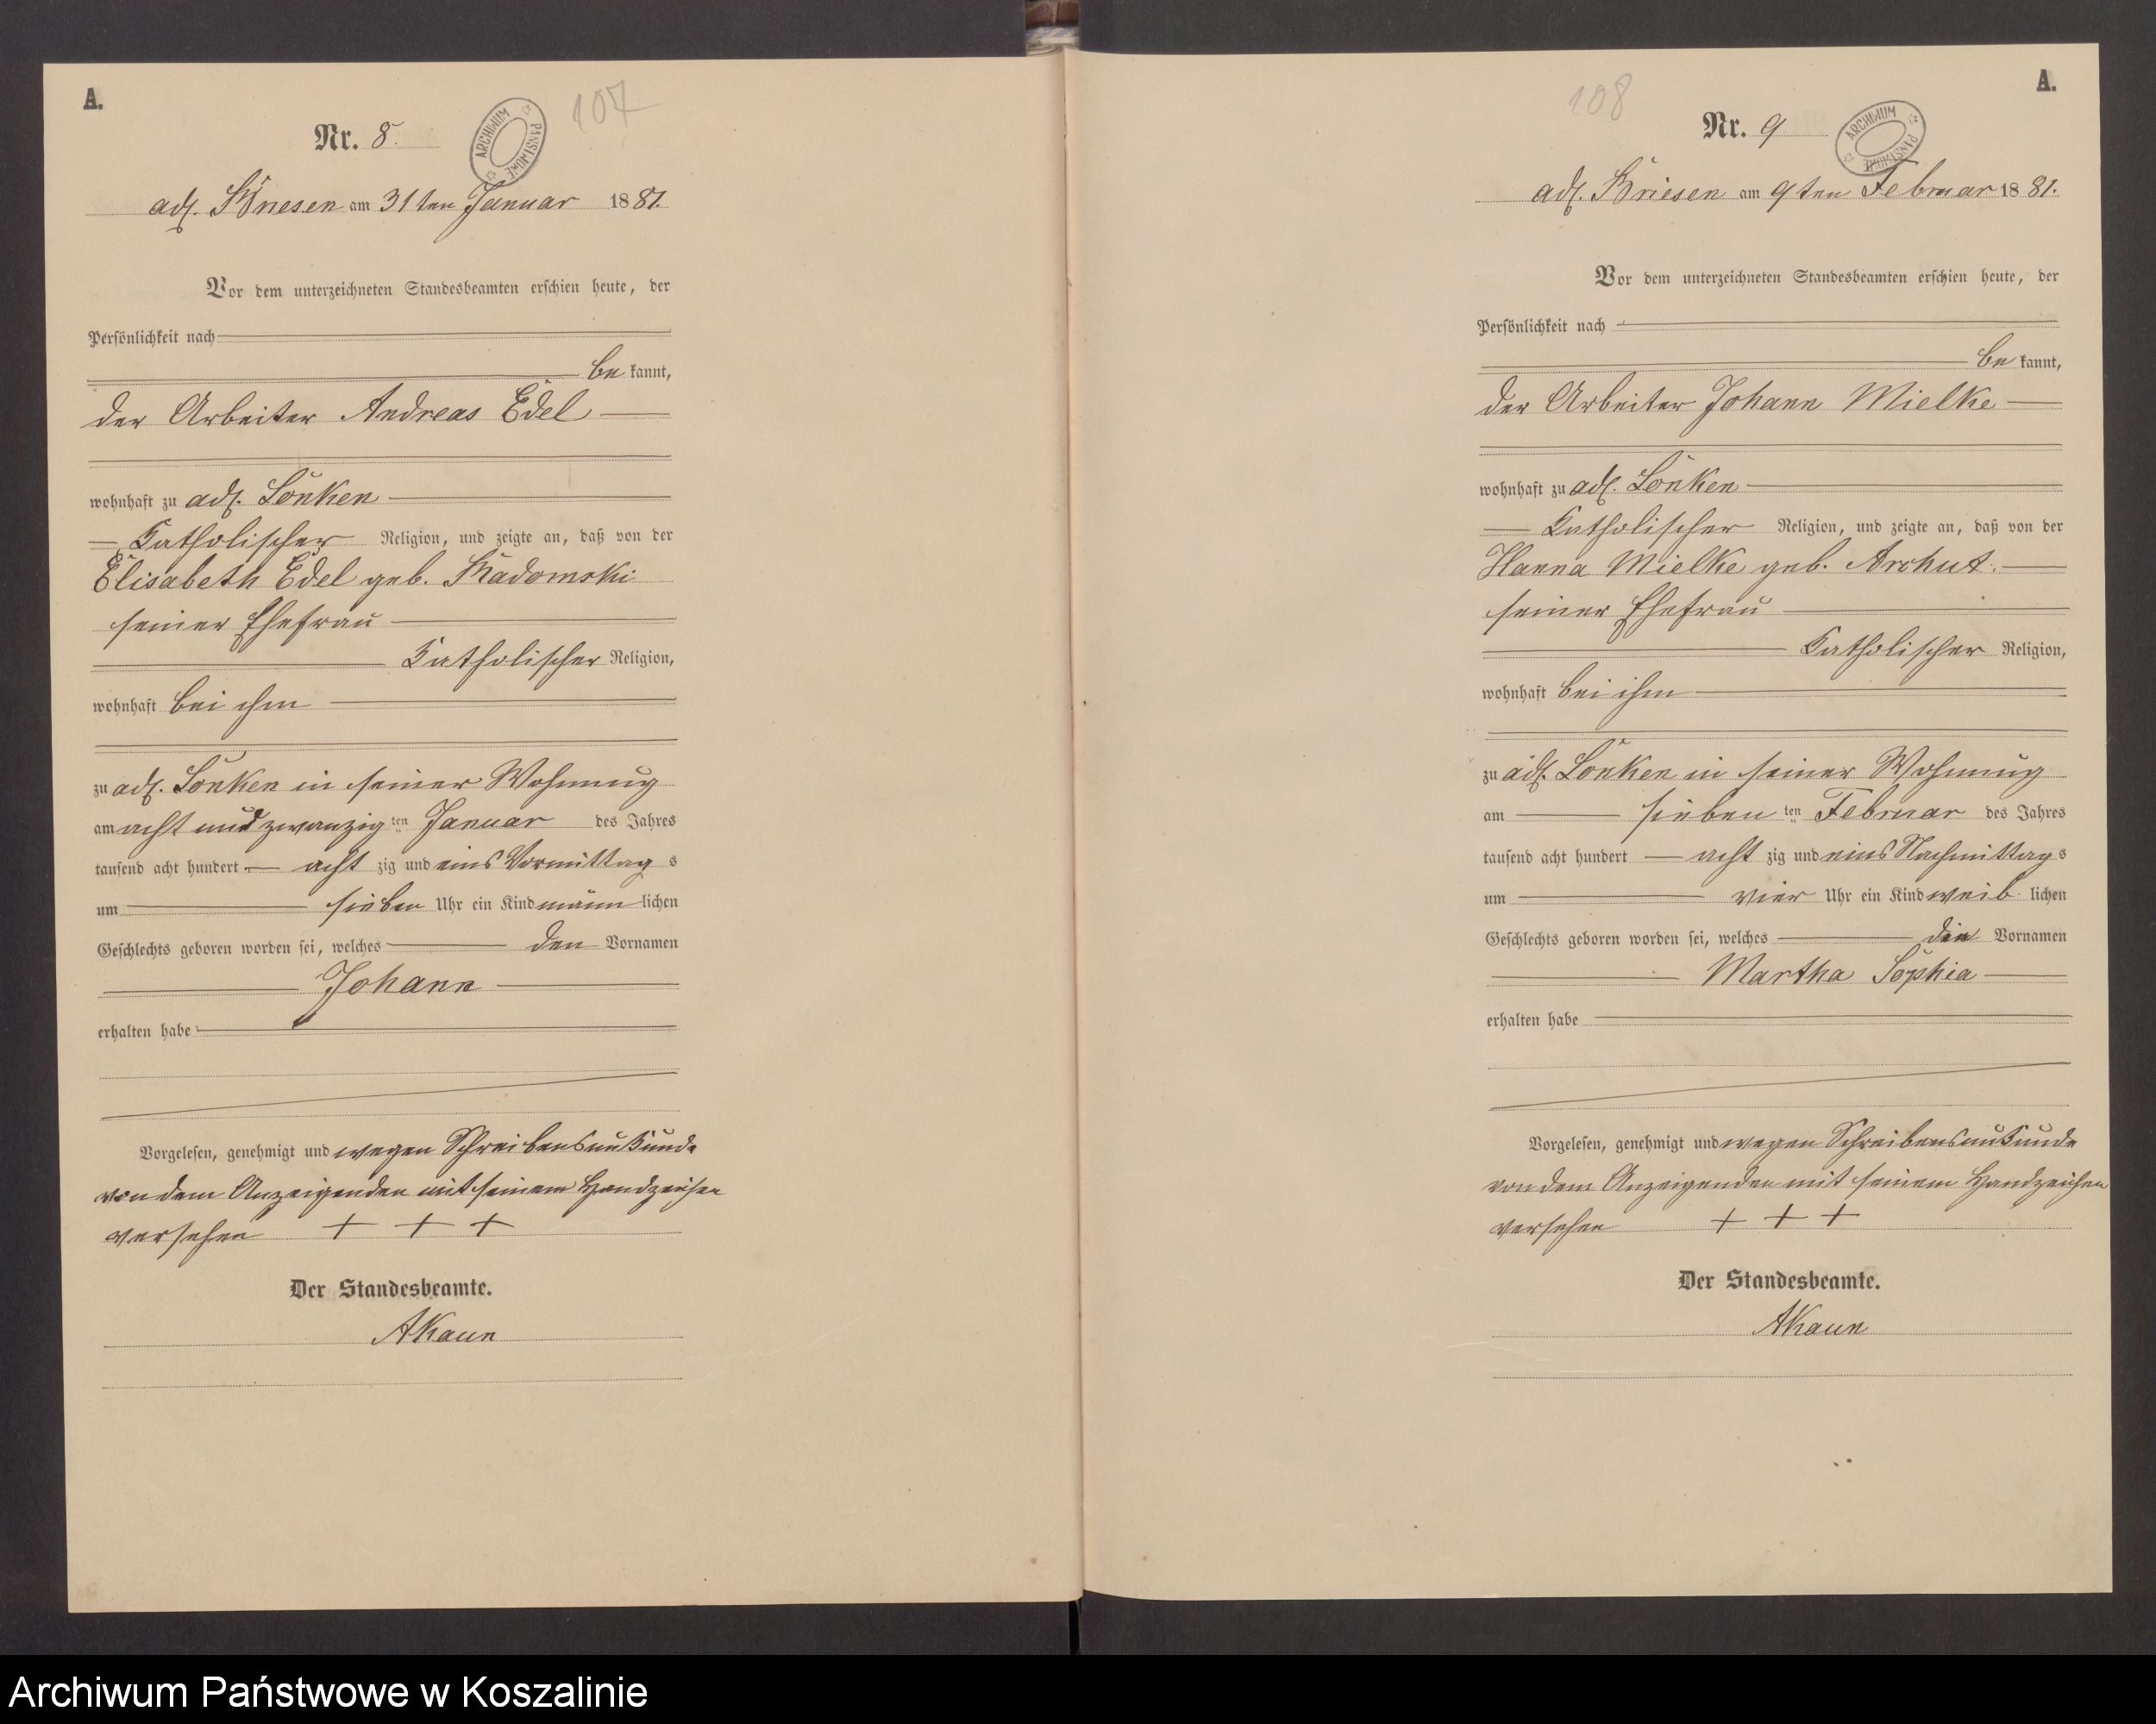 A.
107
Nr. 8.
ARCHIWUM PAŃSTWOWE
adl. Briesen am 31ten Januar 1881.
Vor dem unterzeichneten Standesbeamten erschien heute, der
Persönlichkeit nach
be kannt,
der Arbeiter Andreas Edel
wohnhaft zu adl. Lonken
Katholischer Religion, und zeigte an, daß von der
Elisabeth Edel geb.
seiner Ehefrau
Katholischer Religion,
wohnhaft bei ihm
zu adl. Lonken in seiner Wohnung
am acht und zwanzig ten Januar des Jahres
tausend acht hundert acht zig und eins Vormittag s
um sieben Uhr ein Kind männ lichen
Geschlechts geboren worden sei, welches den Vornamen
Johann
erhalten habe
Vorgelesen, genehmigt und wegen Schreibensunkunde
von dem Anzeigenden mit seinem Handzeichen
versehen + + +
Der Standesbeamte.
AKaun
A.
108
Nr. 9
ARCHIWUM PAŃSTWOWE
adl. Briesen am 9ten Februar 1881.
Vor dem unterzeichneten Standesbeamten erschien heute, der
Persönlichkeit nach
be kannt,
der Arbeiter Johann Mielke
wohnhaft zu adl. Lonken
Katholischer Religion, und zeigte an, daß von der
Hanna Mielke geb. Archut.
seiner Ehefrau
Katholischer Religion,
wohnhaft bei ihm
zu adl. Lonken in seiner Wohnung
am sieben ten Februar des Jahres
tausend acht hundert acht zig und eins Nachmittag s
um vier Uhr ein Kind weib lichen
Geschlechts geboren worden sei, welches die Vornamen
Martha Sophia
erhalten habe
Vorgelesen, genehmigt und wegen Schreibensunkunde
von dem Anzeigenden mit seinem Handzeichen
versehen + + +
Der Standesbeamte.
AKaun
Archiwum Państwowe w Koszalinie